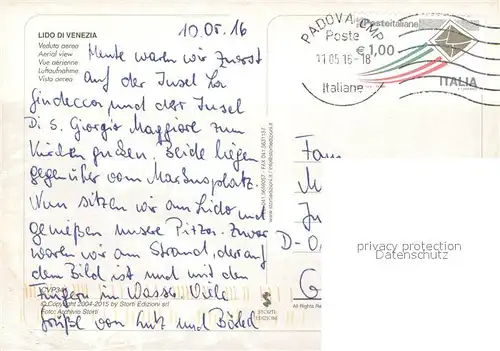 LIDO DI VENEZIA
Veduta aerea
Aerial view
Vue aérienne
Luftaufnahme
Vista aérea
10.05.16
Heute waren wir zuerst
auf der Insel La
Giudecca und der Insel
Di S. Giorgio Maggiore zum
Kirchen gucken. Beide liegen
gegenüber vom Markusplatz.
Nun sitzen wir am Lido und
genießen unsere Pizza. Zuvor
waren wir am Strand, der auf
dem Bild ist und mit den
Füßen im Wasser. Viele
Grüße von Lutz und
CVP344
© Copyright 2004-2015 by Storti Edizioni srl
Foto: Archivio Storti
STORTI
EDIZIONI
All Rights
PADOVA CMP
Poste
11.05.16-18
Italiane
posteitaliane
€1,00
ITALIA
Fam
D-0
G
privacy protection
Datenschutz